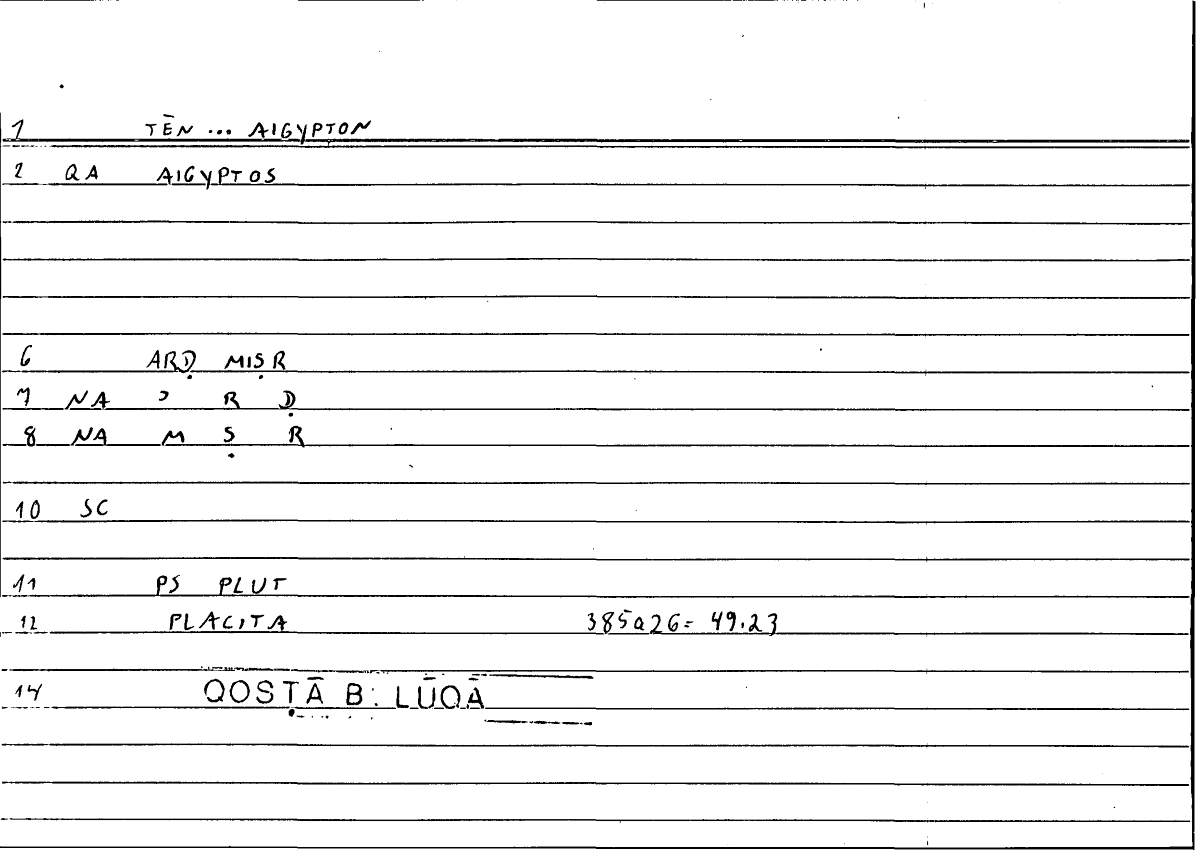 1 TĒN ... AIGYPTON
2 QA AIGYPTOS
6 ARḌ MIṢR
7 NA ʾ R Ḍ
8 NA M Ṣ R
10 SC
11 PS PLUT
12 PLACITA 385a26= 49.23
14 QOSṬĀ B. LŪQĀ